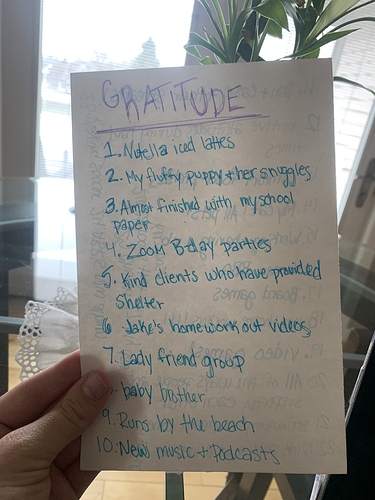 GRATITUDE
1. Nutella iced lattes
2. My fluffy puppy + her snuggles
3. Almost finished with my school
paper
4. Zoom B-day parties
5. Kind clients who have provided
Shelter
6. Jake's home work out videos
7. Lady friend group
8. baby brother
9. Runs by the beach
10. New music + Podcasts